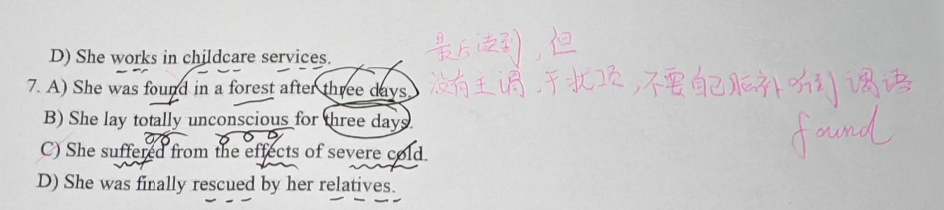 D) She works in childcare services.
7. A) She was found in a forest after three days.
B) She lay totally unconscious for three days.
C) She suffered from the effects of severe cold.
D) She was finally rescued by her relatives.
最后读到，但
没有主谓，干扰项，不要自己脑补听到谓语
found